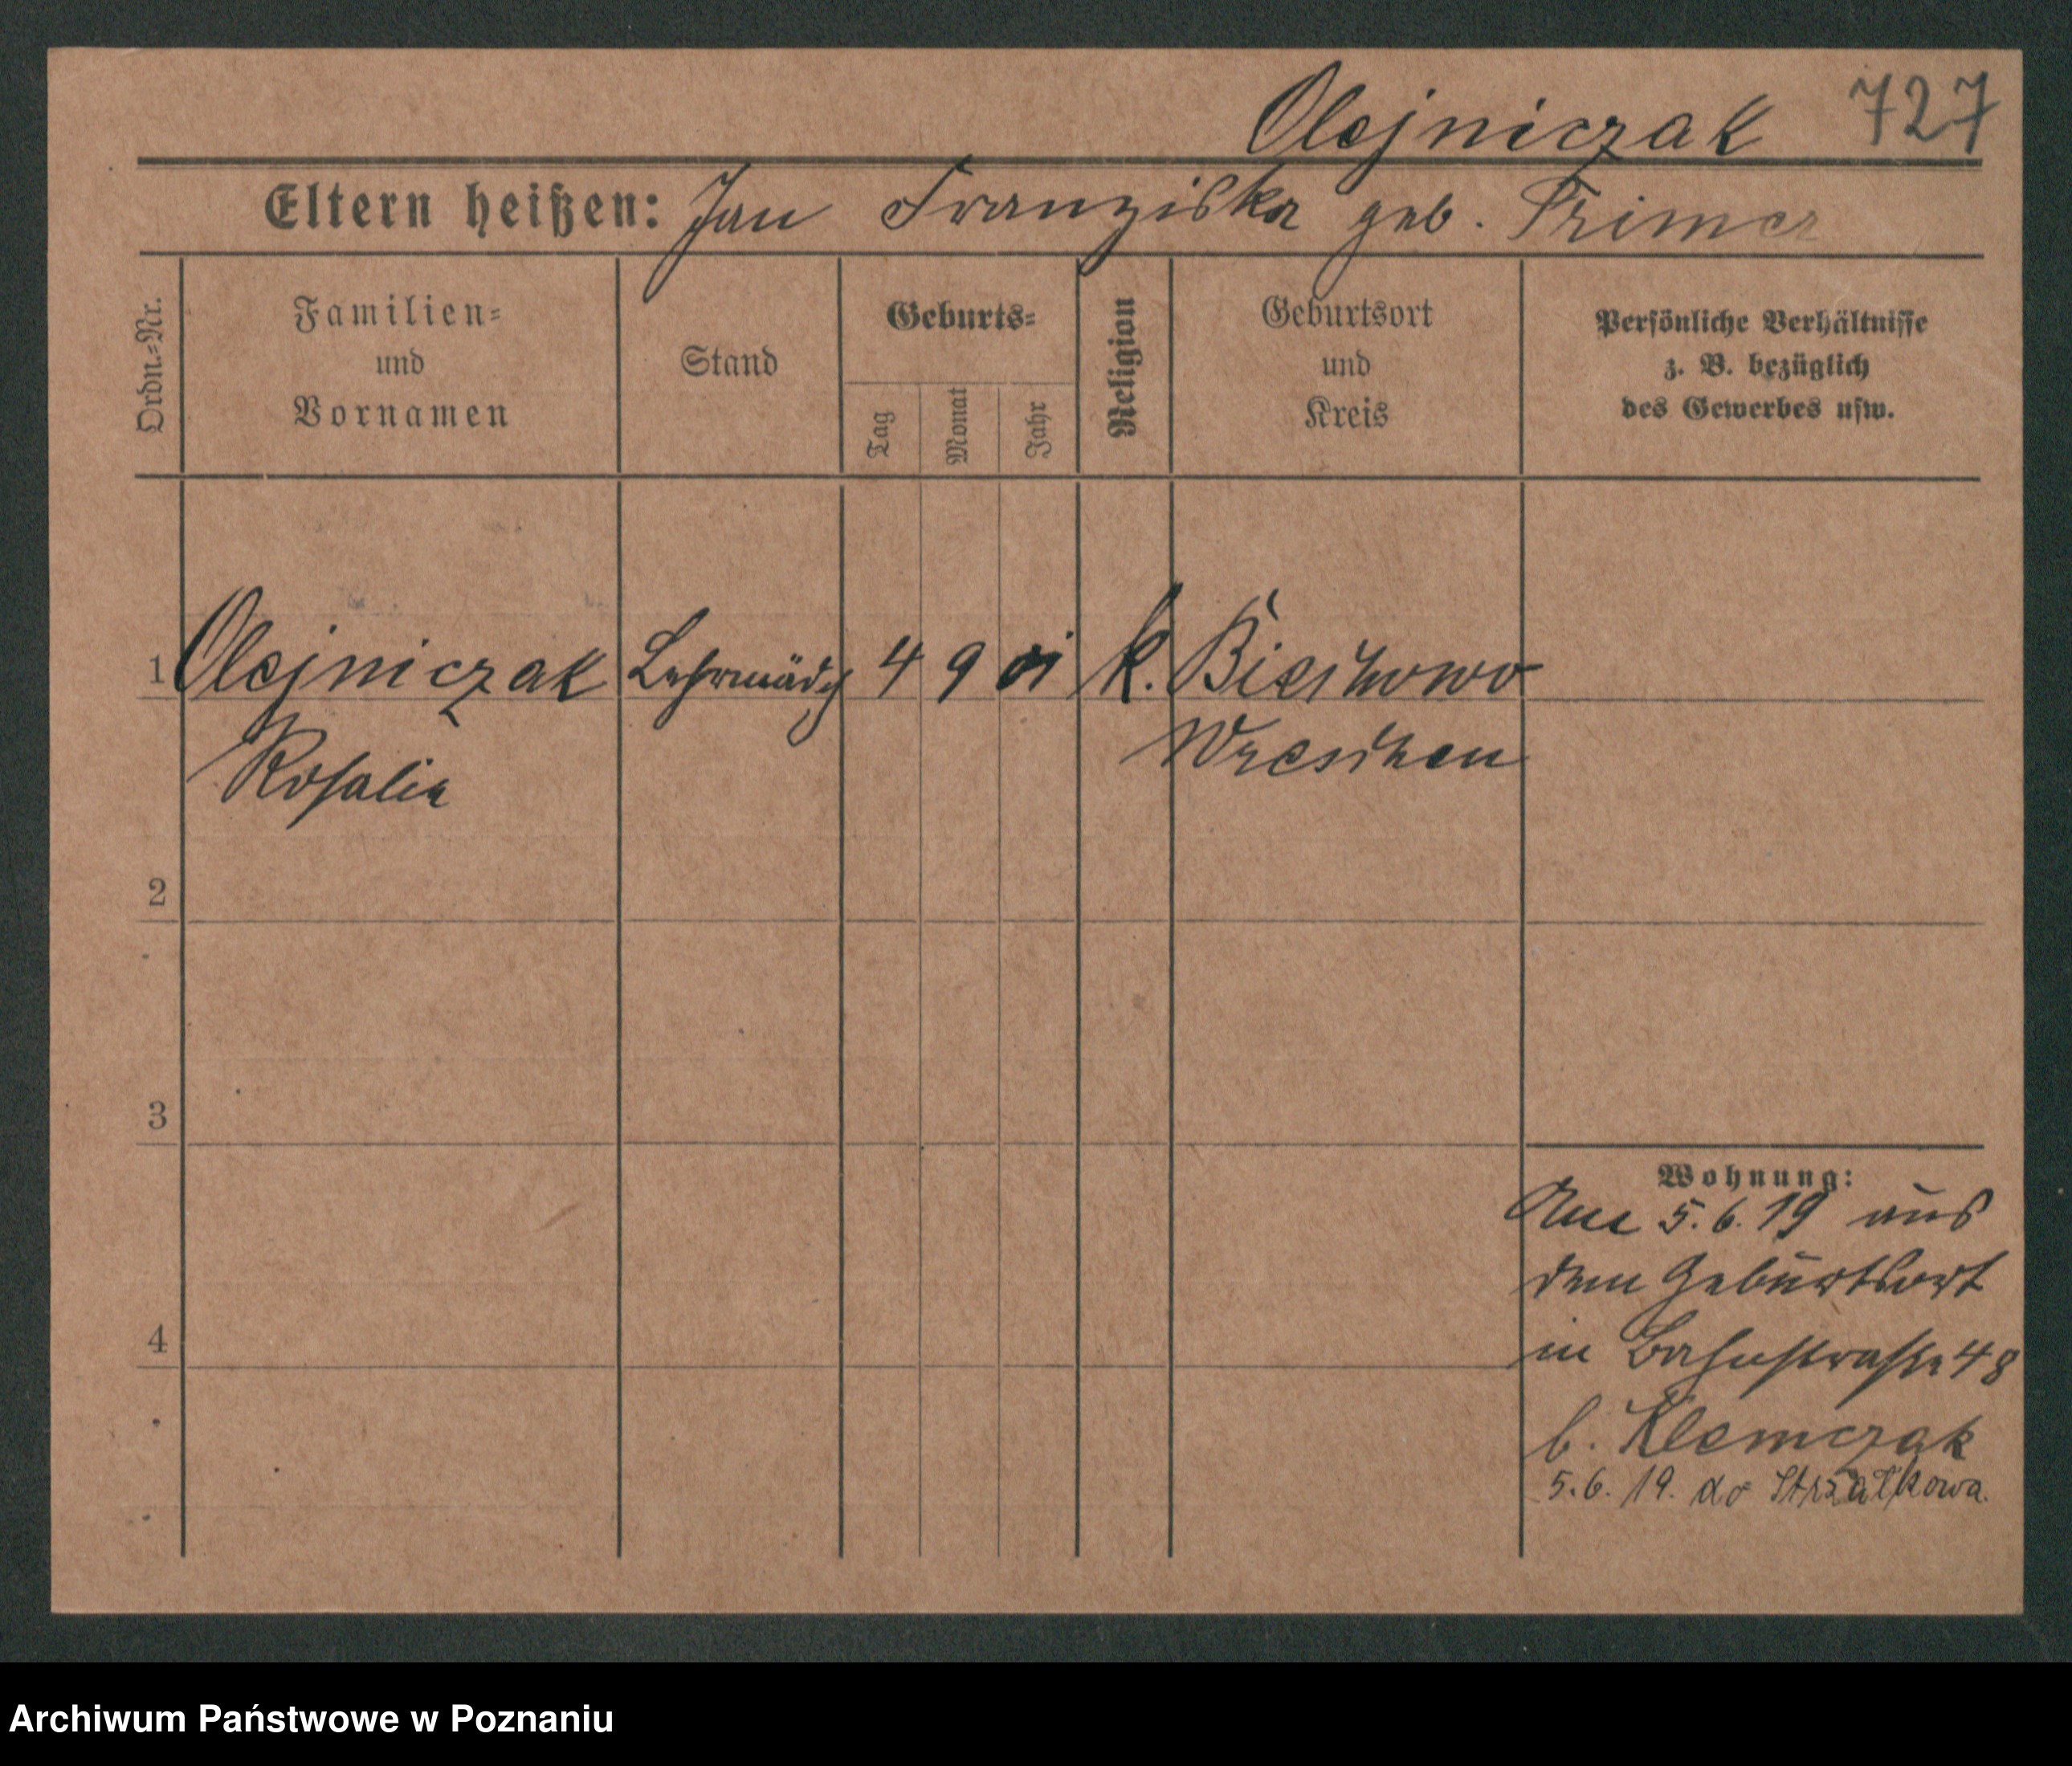 Olejniczak 727
Eltern heißen: Jan Franziska geb. Primer
Ordn.-Nr.
Familien- und Vornamen
Stand
Geburts-
Tag
Monat
Jahr
Religion
Geburtsort und Kreis
Persönliche Verhältnisse
z. B. bezüglich
des Gewerbes usw.
1 Olejniczak Lehrmädch 4 9 01 k. Biechowo
Rosalie Wreschen
2
3
4
Wohnung:
5.6.19 aus
dem Geburtsort
in Bahnstraße 48
b. Klemczak
5.6.19. do Strzałkowa.
Archiwum Państwowe w Poznaniu